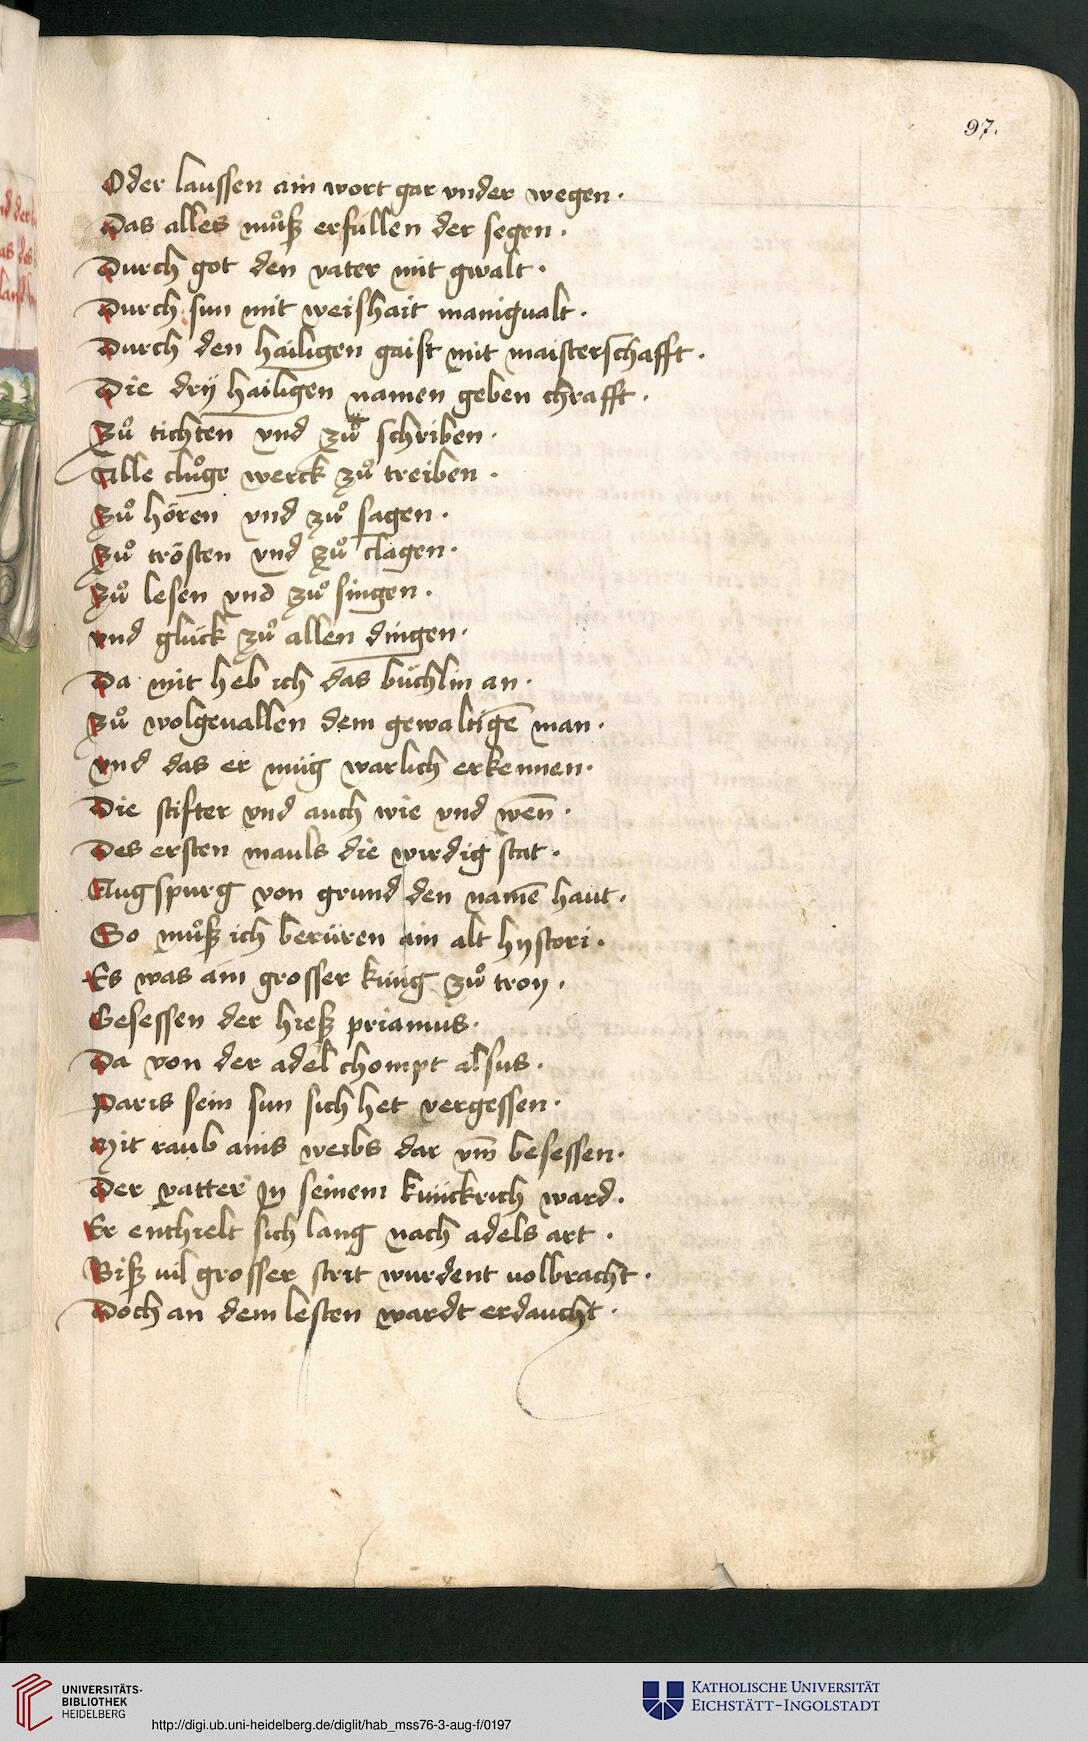 97.
Oder laussen ain wort gar vnder wegen ·
Das alles muͦß erfüllen der segen ·
Durch got den vater mit gwalt ·
Durch sun mit weishait manigualt ·
Durch den hailigen gaist mit maisterschafft ·
Die drÿ hailigen namen geben chrafft ·
Zuͦ tichten vnd zuͦ schriben ·
Alle cluͦge werck zuͦ treiben ·
Zuͦ hören vnd zuͦ sagen ·
Zuͦ trösten vnd zuͦ clagen ·
Zuͦ lesen vnd zuͦ singen ·
vnd glück zuͦ allen dingen ·
Da mit heb ich das büchlin an ·
Zuͦ wolgeuallen dem gewaltigē man ·
vnd das er müg warlich erkennen ·
Die stifter vnd auch wie vnd wen̄ ·
Des ersten mauls die wirdig stat ·
Augspurg von grund den namē haut ·
So muͦß ich berüren ain alt hystori ·
Es was ain grosser küng zuͦ troy ·
Gesessen der hieß priamus ·
Da von der adel chompt alsus ·
Paris sein sun sich het vergessen ·
Mit raub ains weibs dar vm̄ besessen ·
Der vatter in seinem künckrich ward ·
Er enthielt sich lang nach adels art ·
Biß uil grosser strit wurdent uolbracht ·
Doch an dem lesten wardt erdaucht ·
UNIVERSITÄTS-
BIBLIOTHEK
HEIDELBERG
http://digi.ub.uni-heidelberg.de/diglit/hab_mss76-3-aug-f/0197
KATHOLISCHE UNIVERSITÄT
EICHSTÄTT-INGOLSTADT